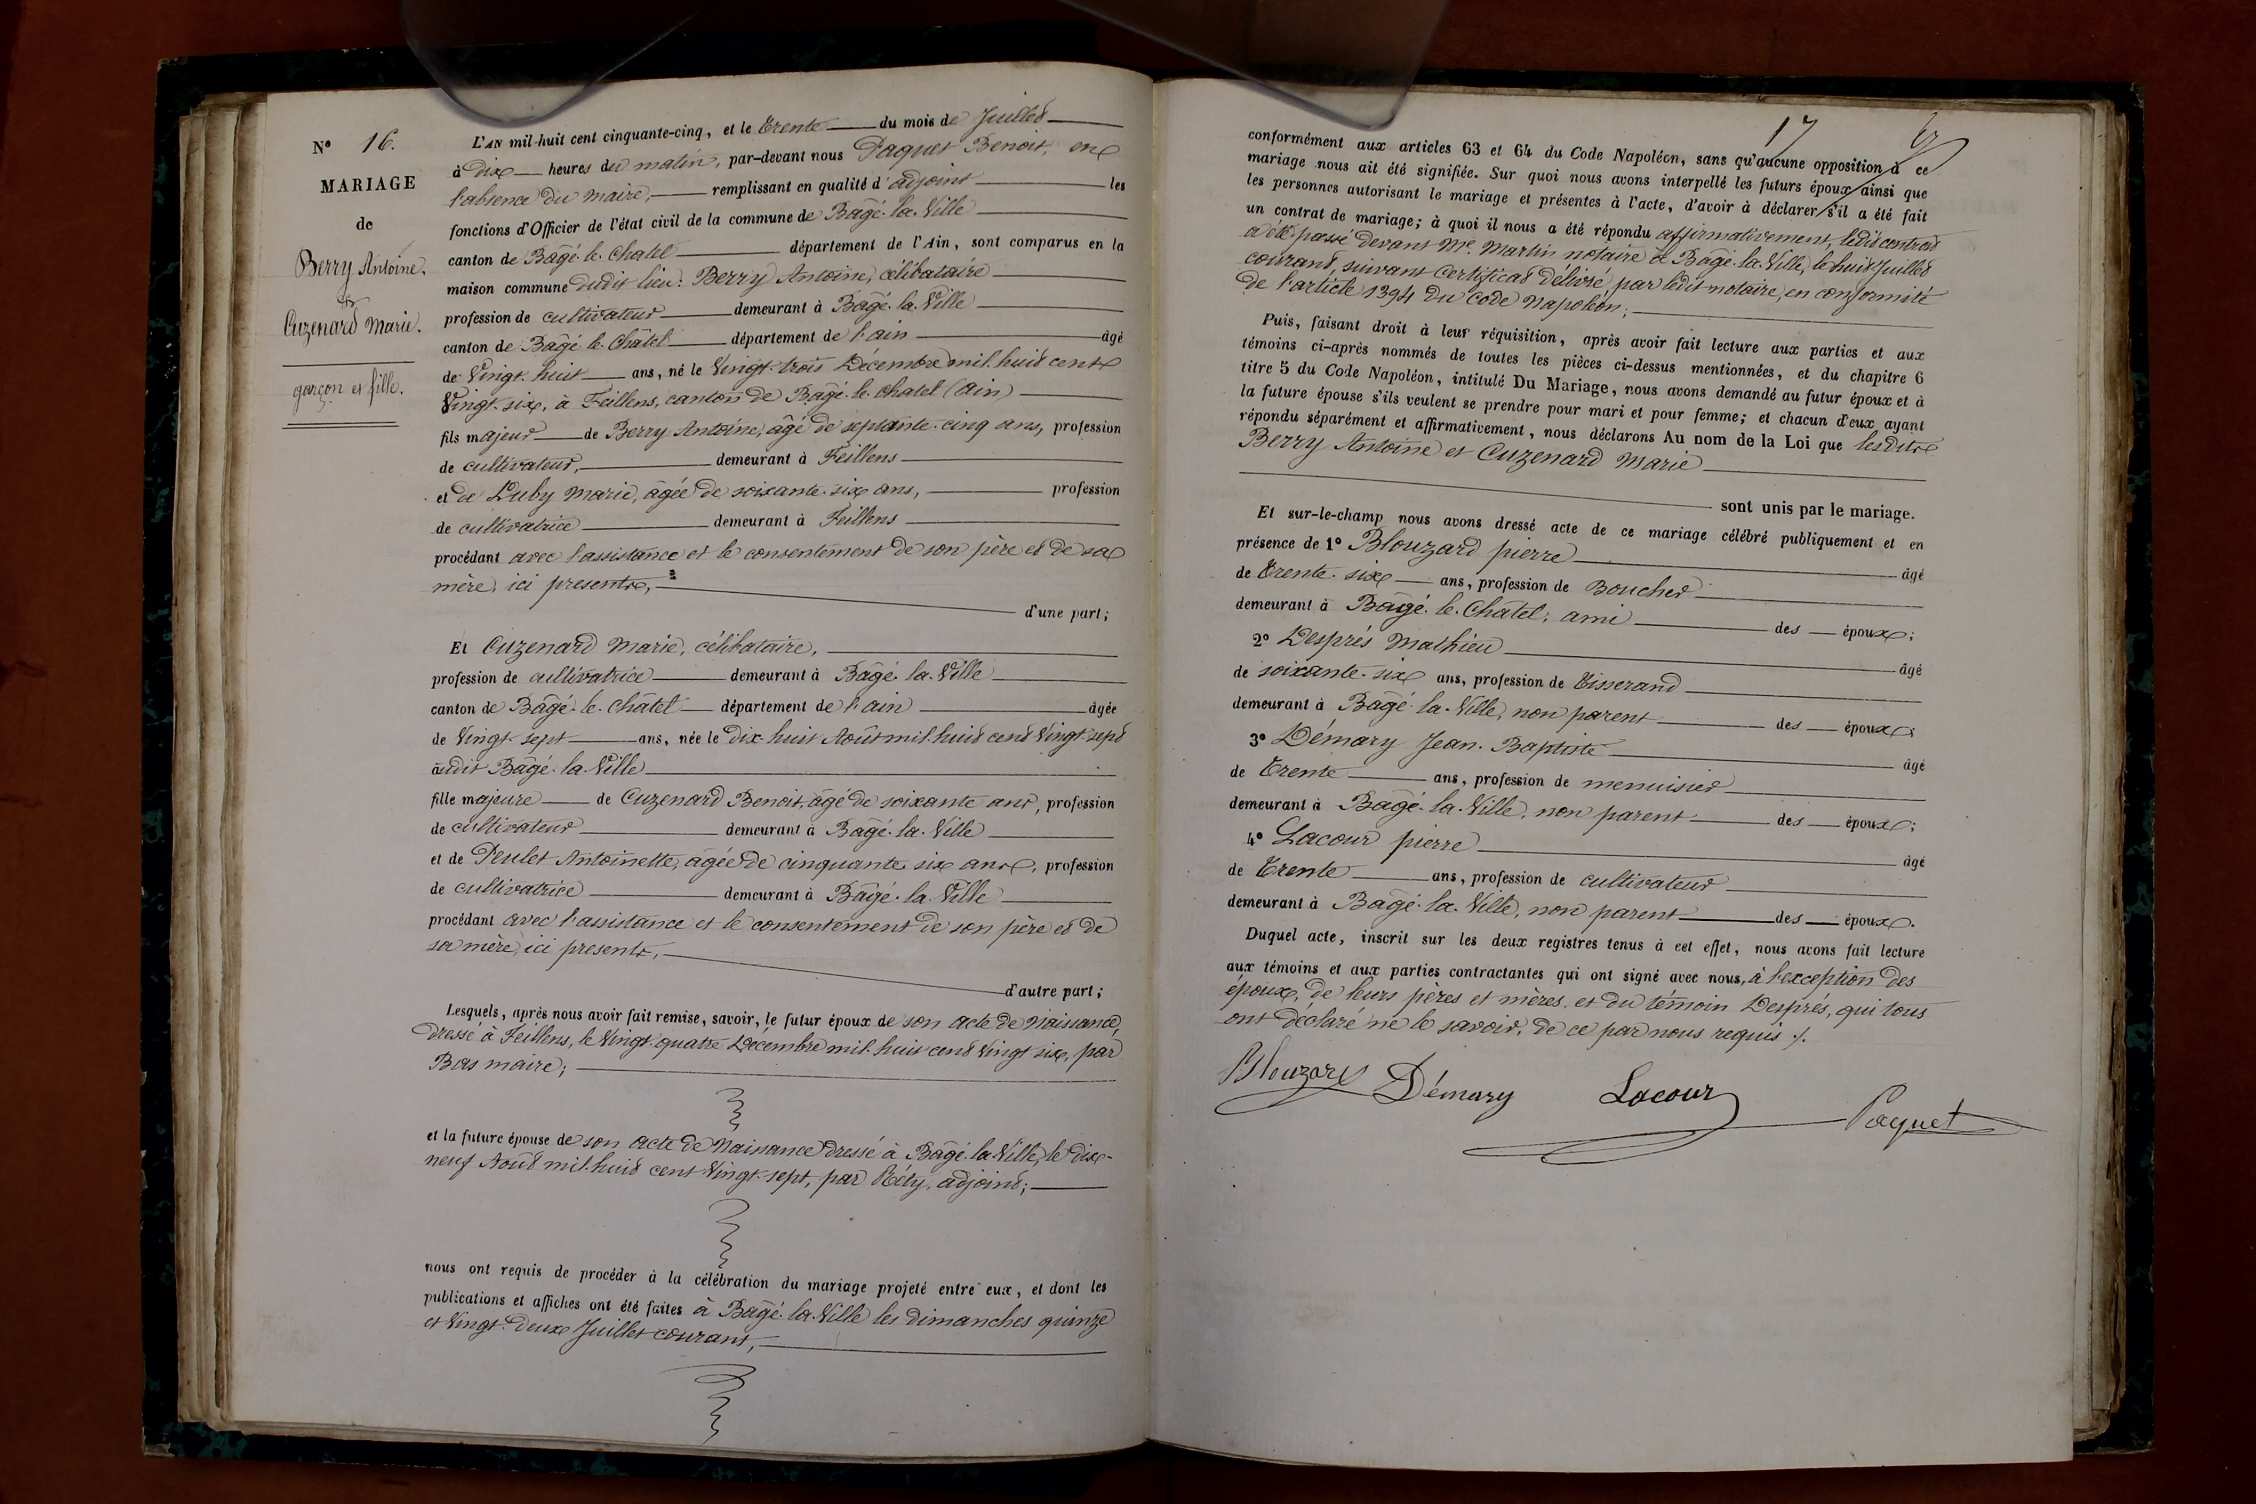 N° 16.
MARIAGE
de
Berry Antoine,
et
Cuzenard Marie.
garçon et fille.
L'AN mil-huit cent cinquante-cinq, et le trente du mois de Juillet
à dix heures du matin, par-devant nous Paquet Benoit, en
l'absence du maire, remplissant en qualité d'adjoint les
fonctions d'Officier de l'état civil de la commune de Bâgé-la-Ville
canton de Bâgé-le-Châtel département de l'Ain, sont comparus en la
maison commune dudit lieu: Berry Antoine, célibataire
profession de cultivateur demeurant à Bâgé-la-Ville
canton de Bâgé-le-Châtel département de l'ain âgé
de Vingt-huit ans, né le Vingt-trois Décembre mil-huit cent
Vingt-six, à Feillens, canton de Bâgé-le-chatel (Ain)
fils majeur de Berry Antoine, âgé de septante-cinq ans, profession
de cultivateur, demeurant à Feillens
et de Luby Marie, âgée de soixante-six ans, profession
de cultivatrice demeurant à Feillens
procédant avec l'assistance et le consentement de son père et de sa
mère, ici présents,
d'une part;
Et Cuzenard Marie, célibataire,
profession de cultivatrice demeurant à Bâgé-la-Ville
canton de Bâgé-le-Châtel département de l'ain âgée
de Vingt-sept ans, née le dix-huit Août mil-huit cent Vingt-sept
audit Bâgé-la-Ville
fille majeure de Cuzenard Benoit, âgé de soixante ans, profession
de cultivateur demeurant à Bâgé-la-Ville
et de Peulet Antoinette, âgée de cinquante-six ans, profession
de cultivatrice demeurant à Bâgé-la-Ville
procédant avec l'assistance et le consentement de son père et de
sa mère, ici présents,
d'autre part;
Lesquels, après nous avoir fait remise, savoir, le futur époux de son acte de Naissance,
dressé à Feillens, le Vingt-quatre Décembre mil-huit cent Vingt-six, par
Bas maire;
et la future épouse de son acte de Naissance dressé à Bâgé-la-Ville, le dix-
neuf Août mil-huit cent Vingt-sept, par Rély, adjoint;
nous ont requis de procéder à la célébration du mariage projeté entre eux, et dont les
publications et affiches ont été faites à Bâgé-la-Ville les dimanches quinze
et Vingt-deux Juillet courant,
17
conformément aux articles 63 et 64 du Code Napoléon, sans qu'aucune opposition à ce
mariage nous ait été signifiée. Sur quoi nous avons interpellé les futurs époux ainsi que
les personnes autorisant le mariage et présentes à l'acte, d'avoir à déclarer s'il a été fait
un contrat de mariage; à quoi il nous a été répondu affirmativement, ledit contrat
a été passé devant Me Martin notaire à Bâgé-la-Ville, le huit Juillet
courant, suivant certificat délivré par ledit notaire, en conformité
de l'article 1394 du Code Napoléon;
Puis, faisant droit à leur réquisition, après avoir fait lecture aux parties et aux
témoins ci-après nommés de toutes les pièces ci-dessus mentionnées, et du chapitre 6
titre 5 du Code Napoléon, intitulé Du Mariage, nous avons demandé au futur époux et à
la future épouse s'ils veulent se prendre pour mari et pour femme; et chacun d'eux ayant
répondu séparément et affirmativement, nous déclarons Au nom de la Loi que lesdits
Berry Antoine et Cuzenard Marie
sont unis par le mariage.
Et sur-le-champ nous avons dressé acte de ce mariage célébré publiquement et en
présence de 1° Blouzard pierre âgé
de trente-six ans, profession de Boucher
demeurant à Bâgé-le-Châtel, ami des époux;
2° Desprès Mathieu âgé
de soixante-six ans, profession de tisserand
demeurant à Bâgé-la-Ville, non parent des époux;
3° Démary Jean-Baptiste âgé
de trente ans, profession de menuisier
demeurant à Bâgé-la-Ville, non parent des époux;
4° Lacour pierre âgé
de trente ans, profession de cultivateur
demeurant à Bâgé-la-Ville, non parent des époux.
Duquel acte, inscrit sur les deux registres tenus à cet effet, nous avons fait lecture
aux témoins et aux parties contractantes qui ont signé avec nous, à l'exception des
époux, de leurs pères et mères, et du témoin Desprès, qui tous
ont déclaré ne le savoir, de ce par nous requis ./.
Blouzard Démary Lacour
Paquet